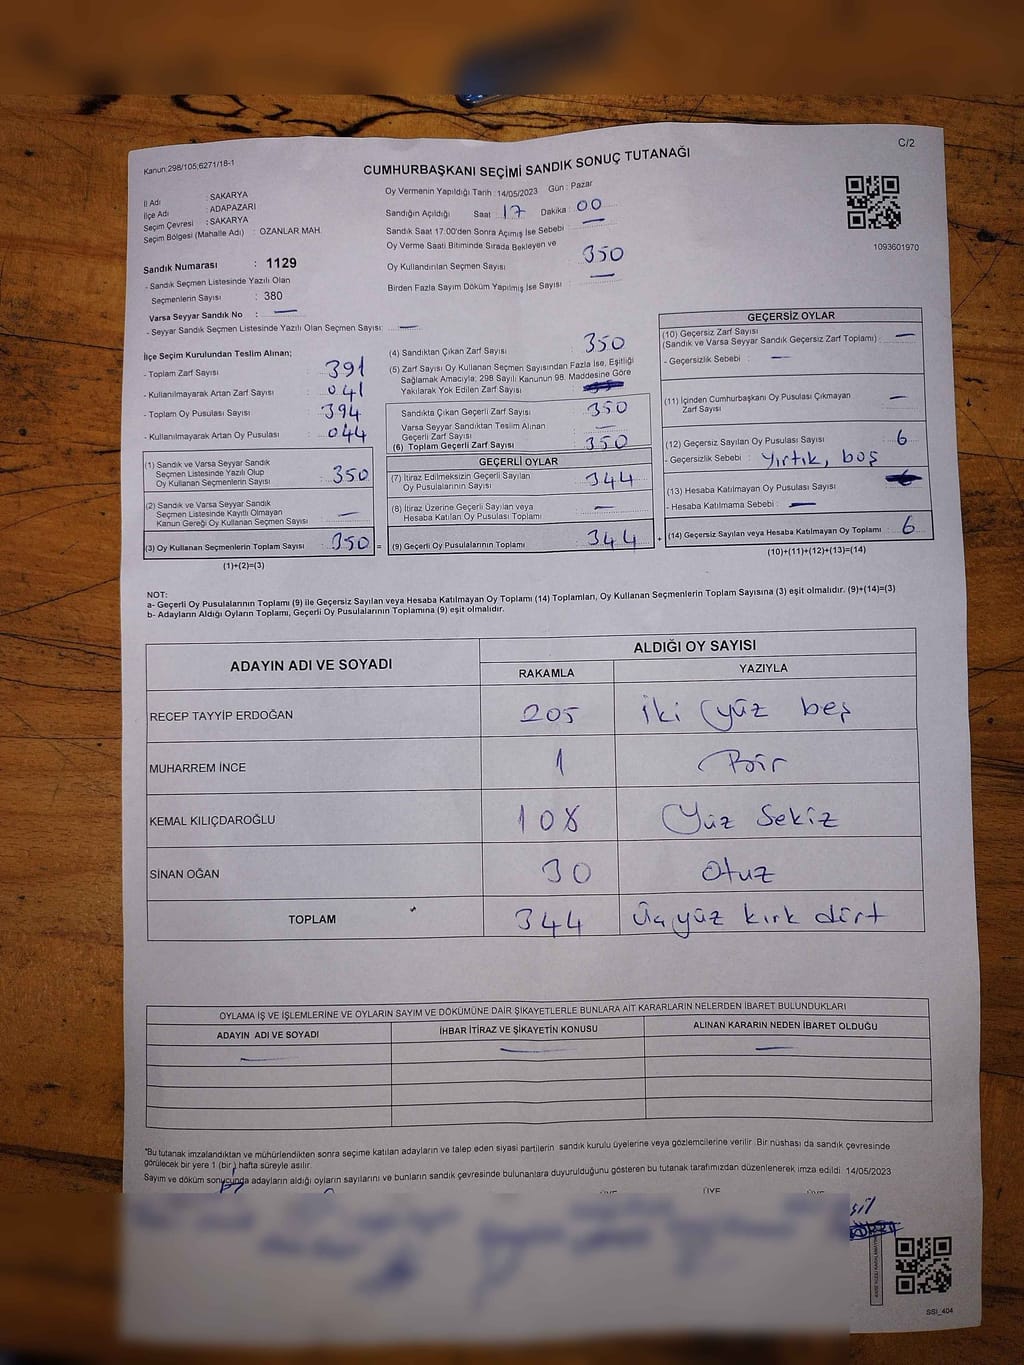 C/2
Kanun:298/105;6271/18-1
CUMHURBAŞKANI SEÇİMİ SANDIK SONUÇ TUTANAĞI
1093601970
İl Adı : SAKARYA
İlçe Adı : ADAPAZARI
Seçim Çevresi : SAKARYA
Seçim Bölgesi (Mahalle Adı) : OZANLAR MAH.
Sandık Numarası : 1129
- Sandık Seçmen Listesinde Yazılı Olan
Seçmenlerin Sayısı : 380
Varsa Seyyar Sandık No : —
- Seyyar Sandık Seçmen Listesinde Yazılı Olan Seçmen Sayısı: —
Oy Vermenin Yapıldığı Tarih : 14/05/2023 Gün : Pazar
Sandığın Açıldığı Saat 17 Dakika 00
Sandık Saat 17.00'den Sonra Açımış İse Sebebi —
Oy Verme Saati Bitiminde Sırada Bekleyen ve
Oy Kullandırılan Seçmen Sayısı 350
Birden Fazla Sayım Döküm Yapılmış İse Sayısı —
İlçe Seçim Kurulundan Teslim Alınan;
- Toplam Zarf Sayısı 391
- Kullanılmayarak Artan Zarf Sayısı 041
- Toplam Oy Pusulası Sayısı 394
- Kullanılmayarak Artan Oy Pusulası 044
(1) Sandık ve Varsa Seyyar Sandık
Seçmen Listesinde Yazılı Olup
Oy Kullanan Seçmenlerin Sayısı 350
(2) Sandık ve Varsa Seyyar Sandık
Seçmen Listesinde Kayıtlı Olmayan
Kanun Gereği Oy Kullanan Seçmen Sayısı —
(3) Oy Kullanan Seçmenlerin Toplam Sayısı 350 =
(1)+(2)=(3)
(4) Sandıktan Çıkan Zarf Sayısı 350
(5) Zarf Sayısı Oy Kullanan Seçmen Sayısından Fazla İse, Eşitliği
Sağlamak Amacıyla; 298 Sayılı Kanunun 98. Maddesine Göre
Yakılarak Yok Edilen Zarf Sayısı
Sandıkta Çıkan Geçerli Zarf Sayısı 350
Varsa Seyyar Sandıktan Teslim Alınan
Geçerli Zarf Sayısı —
(6) Toplam Geçerli Zarf Sayısı 350
GEÇERLİ OYLAR
(7) İtiraz Edilmeksizin Geçerli Sayılan
Oy Pusulalarının Sayısı 344
(8) İtiraz Üzerine Geçerli Sayılan veya
Hesaba Katılan Oy Pusulası Toplamı —
(9) Geçerli Oy Pusulalarının Toplamı 344 +
GEÇERSİZ OYLAR
(10) Geçersiz Zarf Sayısı
(Sandık ve Varsa Seyyar Sandık Geçersiz Zarf Toplamı) —
- Geçersizlik Sebebi : —
(11) İçinden Cumhurbaşkanı Oy Pusulası Çıkmayan
Zarf Sayısı —
(12) Geçersiz Sayılan Oy Pusulası Sayısı 6
- Geçersizlik Sebebi : Yırtık, boş
(13) Hesaba Katılmayan Oy Pusulası Sayısı
- Hesaba Katılmama Sebebi : —
(14) Geçersiz Sayılan veya Hesaba Katılmayan Oy Toplamı 6
(10)+(11)+(12)+(13)=(14)
NOT:
a- Geçerli Oy Pusulalarının Toplamı (9) ile Geçersiz Sayılan veya Hesaba Katılmayan Oy Toplamı (14) Toplamları, Oy Kullanan Seçmenlerin Toplam Sayısına (3) eşit olmalıdır. (9)+(14)=(3)
b- Adayların Aldığı Oyların Toplamı, Geçerli Oy Pusulalarının Toplamına (9) eşit olmalıdır.
ADAYIN ADI VE SOYADI ALDIĞI OY SAYISI
RAKAMLA YAZIYLA
RECEP TAYYİP ERDOĞAN 205 İki yüz beş
MUHARREM İNCE 1 Bir
KEMAL KILIÇDAROĞLU 108 Yüz Sekiz
SİNAN OĞAN 30 Otuz
TOPLAM 344 Üç yüz kırk dört
OYLAMA İŞ VE İŞLEMLERİNE VE OYLARIN SAYIM VE DÖKÜMÜNE DAİR ŞİKAYETLERLE BUNLARA AİT KARARLARIN NELERDEN İBARET BULUNDUKLARI
ADAYIN ADI VE SOYADI İHBAR İTİRAZ VE ŞİKAYETİN KONUSU ALINAN KARARIN NEDEN İBARET OLDUĞU
— — —
*Bu tutanak imzalandıktan ve mühürlendikten sonra seçime katılan adayların ve talep eden siyasi partilerin sandık kurulu üyelerine veya gözlemcilerine verilir. Bir nüshası da sandık çevresinde
görülecek bir yere 1 (bir) hafta süreyle asılır.
Sayım ve döküm sonucunda adayların aldığı oyların sayılarını ve bunların sandık çevresinde bulunanlara duyurulduğunu gösteren bu tutanak tarafımızdan düzenlenerek imza edildi. 14/05/2023
ÜYE ÜYE ÜYE
SSI_404